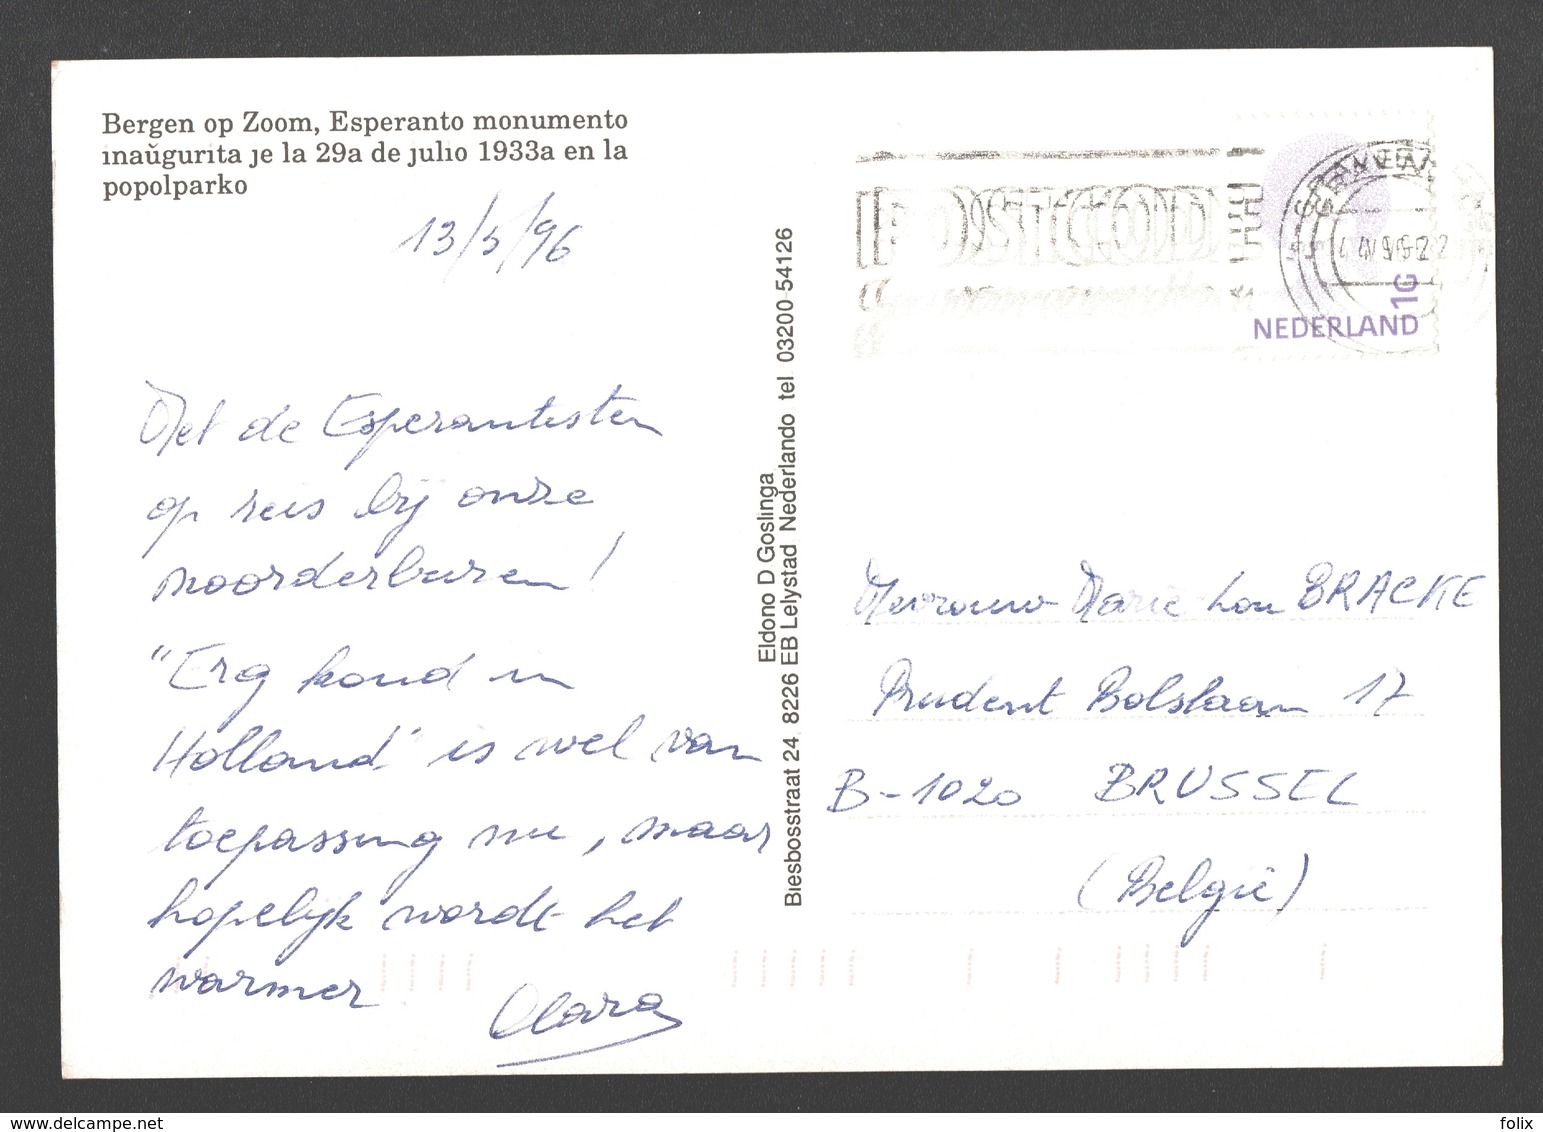 Bergen op Zoom, Esperanto monumento
inaŭgurita je la 29a de julio 1933a en la
popolparko
13/5/96
Met de Esperantisten
op reis bij onze
noorderburen!
"Erg koud in
Holland" is wel van
toepassing nu, maar
hopelijk wordt het
warmer
Clara
Eldono D Goslinga
Biesbosstraat 24 8226 EB Lelystad Nederlando tel 03200-54126
POSTCODE
1G
NEDERLAND
Mevrouw Marie-Lou BRACKE
Prudent Bolslaan 17
B-1020 BRUSSEL
(België)
delcampe.net
folix